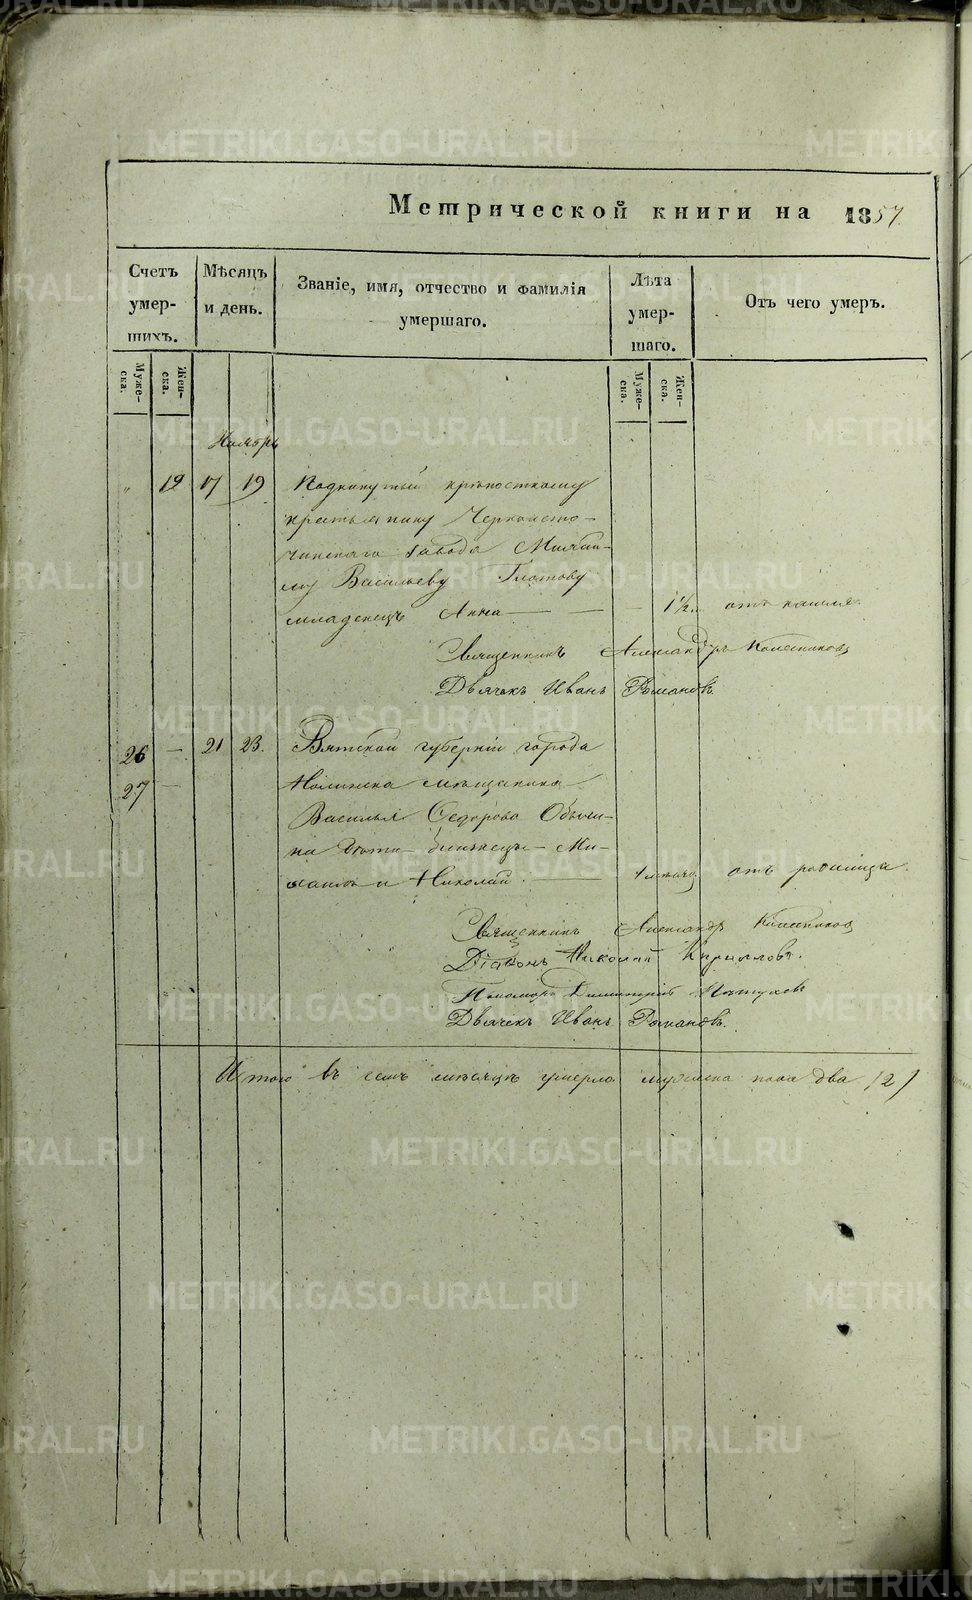 Метрической книги на 1857.
Счетъ умер-шихъ.
Мѣсяцъ и день.
Званіе, имя, отчество и фамилія умершаго.
Лѣта умер-шаго.
Отъ чего умеръ.
Муже-ска.
Жен-ска.
Муже-ска.
Жен-ска.
Ноябрь
" 12 17 19 Подкинутый крѣпостному
крестьянину Черноисто-
чинскаго завода Михаи-
лу Васильеву Глотову
младенецъ Анна — — — 1 1/2 отъ кашля.
Священникъ Александръ Колесниковъ
Дьячекъ Иванъ Романовъ
26 — 21 23. Вятской губерніи города
27 — Нолинска мѣщанина
Василья Ѳедорова
на дѣти близнецы Ми-
хаилъ и Николай — отъ родимца.
Священникъ Александръ Колесниковъ
Діаконъ Николай Кирилловъ.
Пономарь Димитрій
Дьячекъ Иванъ Романовъ.
Итого въ семъ мѣсяцѣ умерло мужеска пола два /2/
METRIKI.GASO-URAL.RU